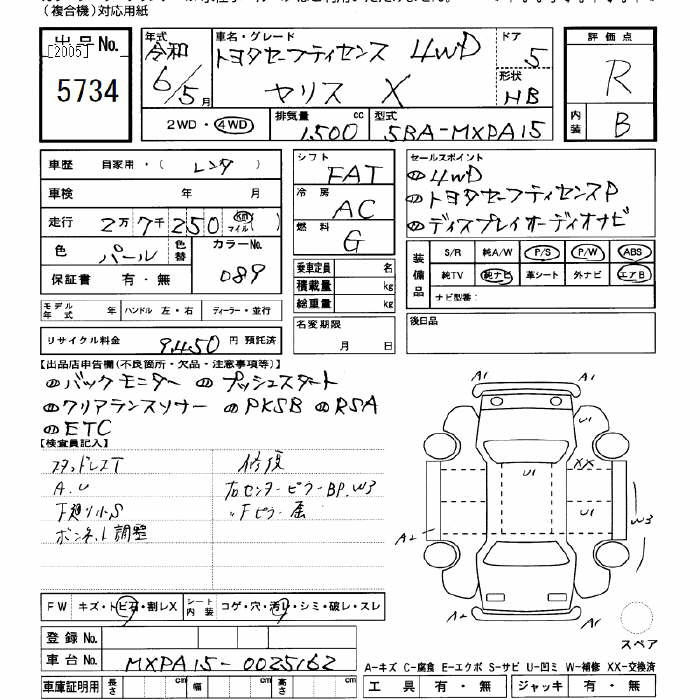 (複合機)対応用紙
出品No.
[2005]
5734
年式 令和 6/5月
車名・グレード
トヨタセーフティセンス 4WD
ヤリス X
ドア 5
形状 HB
2WD・4WD
排気量 1,500 cc
型式 5BA-MXPA15
評価点 R
内装 B
車歴 自家用・( レンタ )
車検 年 月
走行 2万7千250 km マイル
色 パール 色替 カラーNo. 089
保証書 有・無
モデル年式 年 ハンドル 左・右 ディーラー・並行
リサイクル料金 9,450 円 預託済
シフト FAT
冷房 AC
燃料 G
乗車定員 名
積載量 kg
総重量 kg
名変期限
月 日
セールスポイント
4WD
トヨタセーフティセンスP
ディスプレイオーディオナビ
装備品
S/R 純A/W P/S P/W ABS
純TV 純ナビ 革シート 外ナビ エアB
ナビ型番:
後日品
【出品店申告欄(不良箇所・欠品・注意事項等)】
バックモニター プッシュスタート
クリアランスソナー PKSB RSA
ETC
【検査員記入】
スタッドレスT
A.U
下廻り小S
ボンネット調整
修復
右センターピラーBP.W3
〃Fピラー歪
A1 A1
U1
U1 XX
U1
W3
A2
A2 A1
スペア
FW キズ・トビ石・割レX
シート内装 コゲ・穴・汚レ・シミ・破レ・スレ
登録No.
車台No. MXPA15-0025162
車庫証明用 長さ cm 幅 cm 高さ cm
A-キズ C-腐食 E-エクボ S-サビ U-凹ミ W-補修 XX-交換済
工具 有・無 ジャッキ 有・無